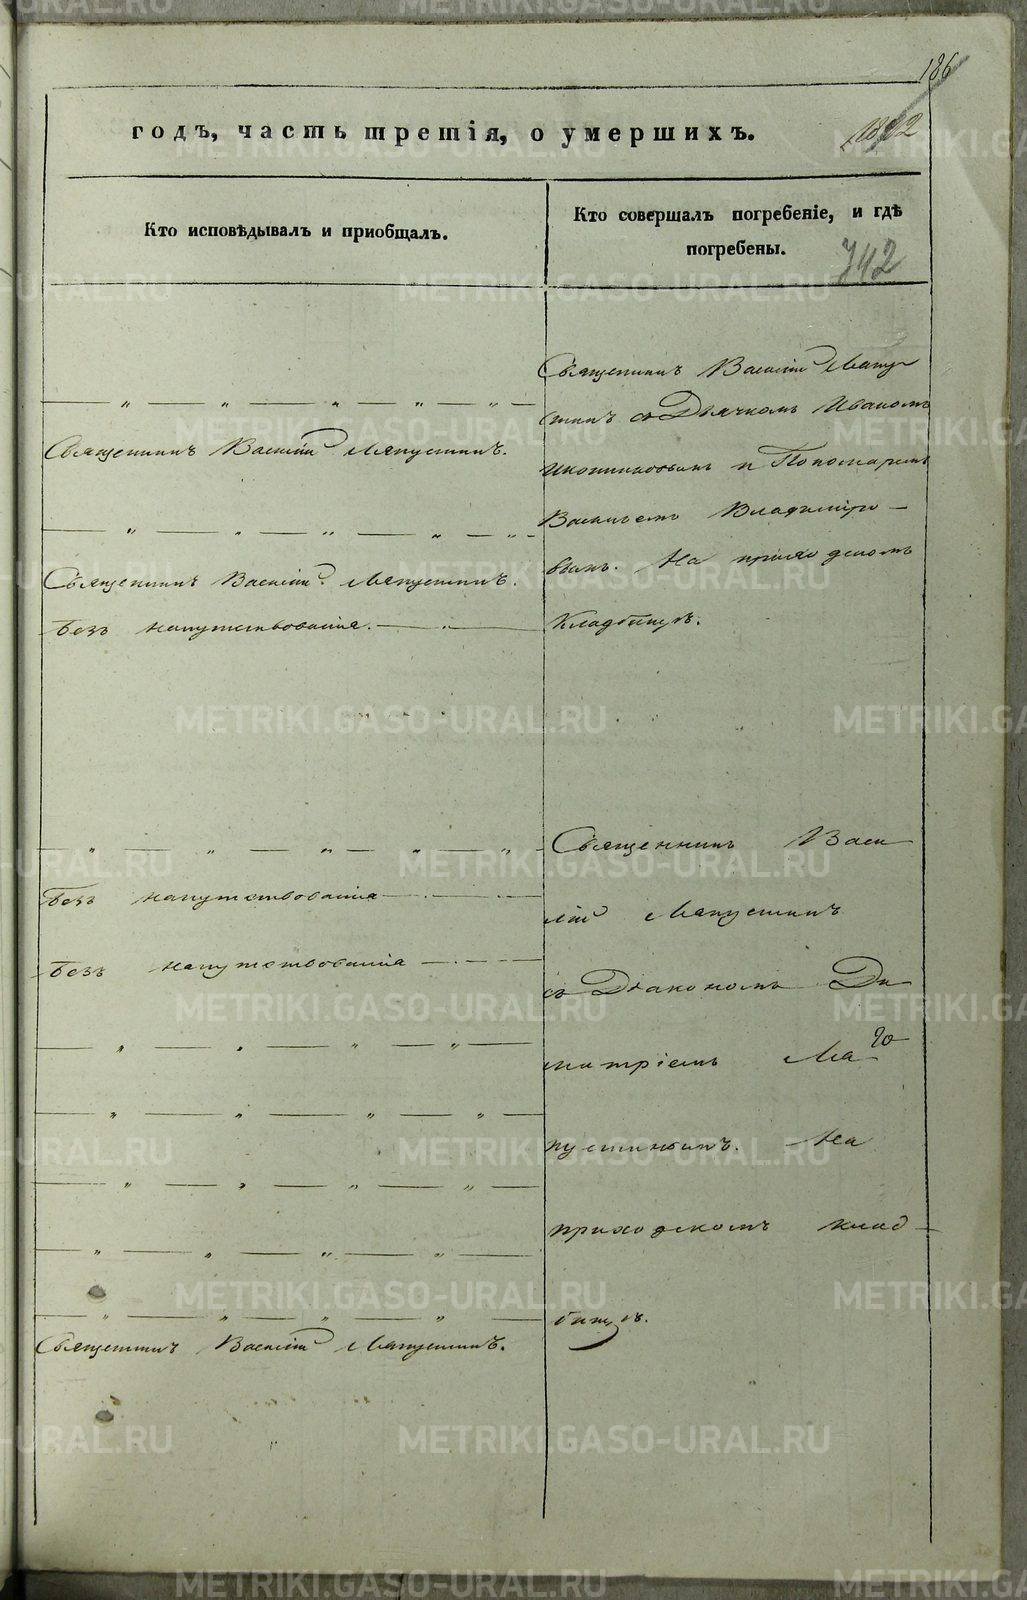 186
годъ, часть третія, о умершихъ.
Кто исповѣдывалъ и приобщалъ.
Кто совершалъ погребеніе, и гдѣ
погребены.
742
Священникъ Василій Мапустинъ.
Священникъ Василій Мапустинъ.
Безъ напутствованія.
Безъ напутствованія
Безъ напутствованія
Священникъ Василій Мапустинъ.
Священникъ Василій Мапу
стинъ съ Дьячкомъ Иваномъ
и Пономаремъ
Васильемъ Владиміро
вымъ. На приходскомъ
Кладбищѣ.
Священникъ Васи
лій Мапустинъ
съ Діакономъ Ди
митріемъ Ма
пустинымъ. На
приходскомъ клад
бищѣ.
METRIKI.GASO-URAL.RU